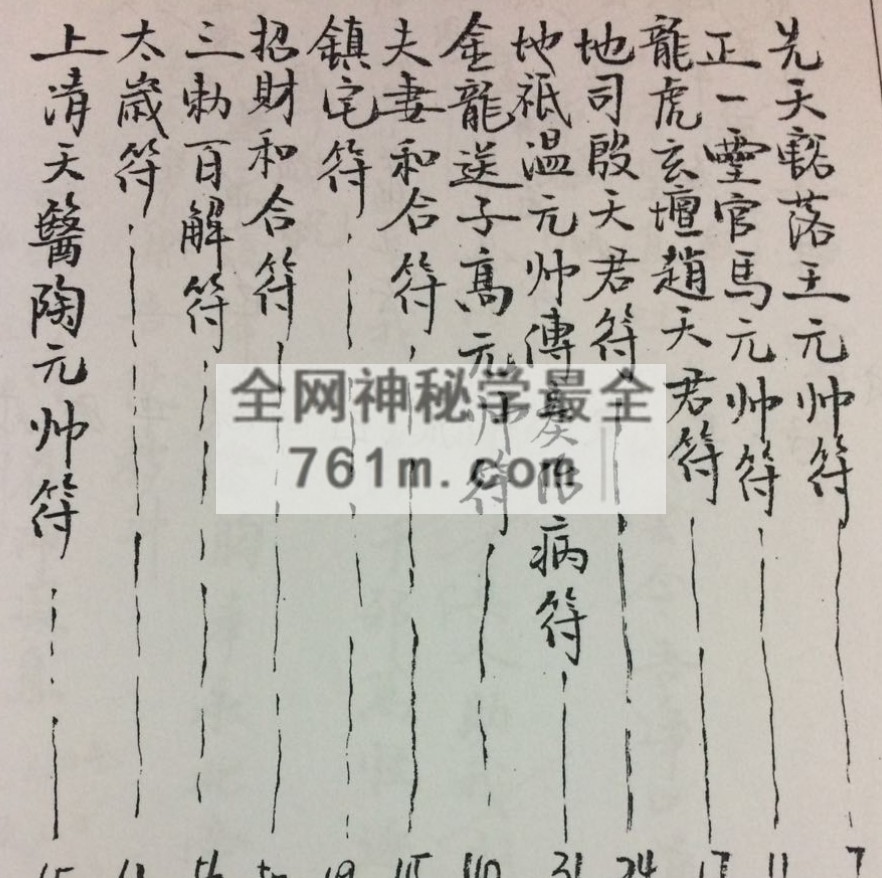 先天豁落王元帅符 7
正一靈官馬元帅符 11
龍虎玄壇趙天君符
地司殷天君符 24
地祇温元帅傳 病符 31
金龍送子高元帅符
夫妻和合符
鎮宅符
招財和合符
三勅百解符
太歲符
上清天醫陶元帅符
全网神秘学最全
761m.com